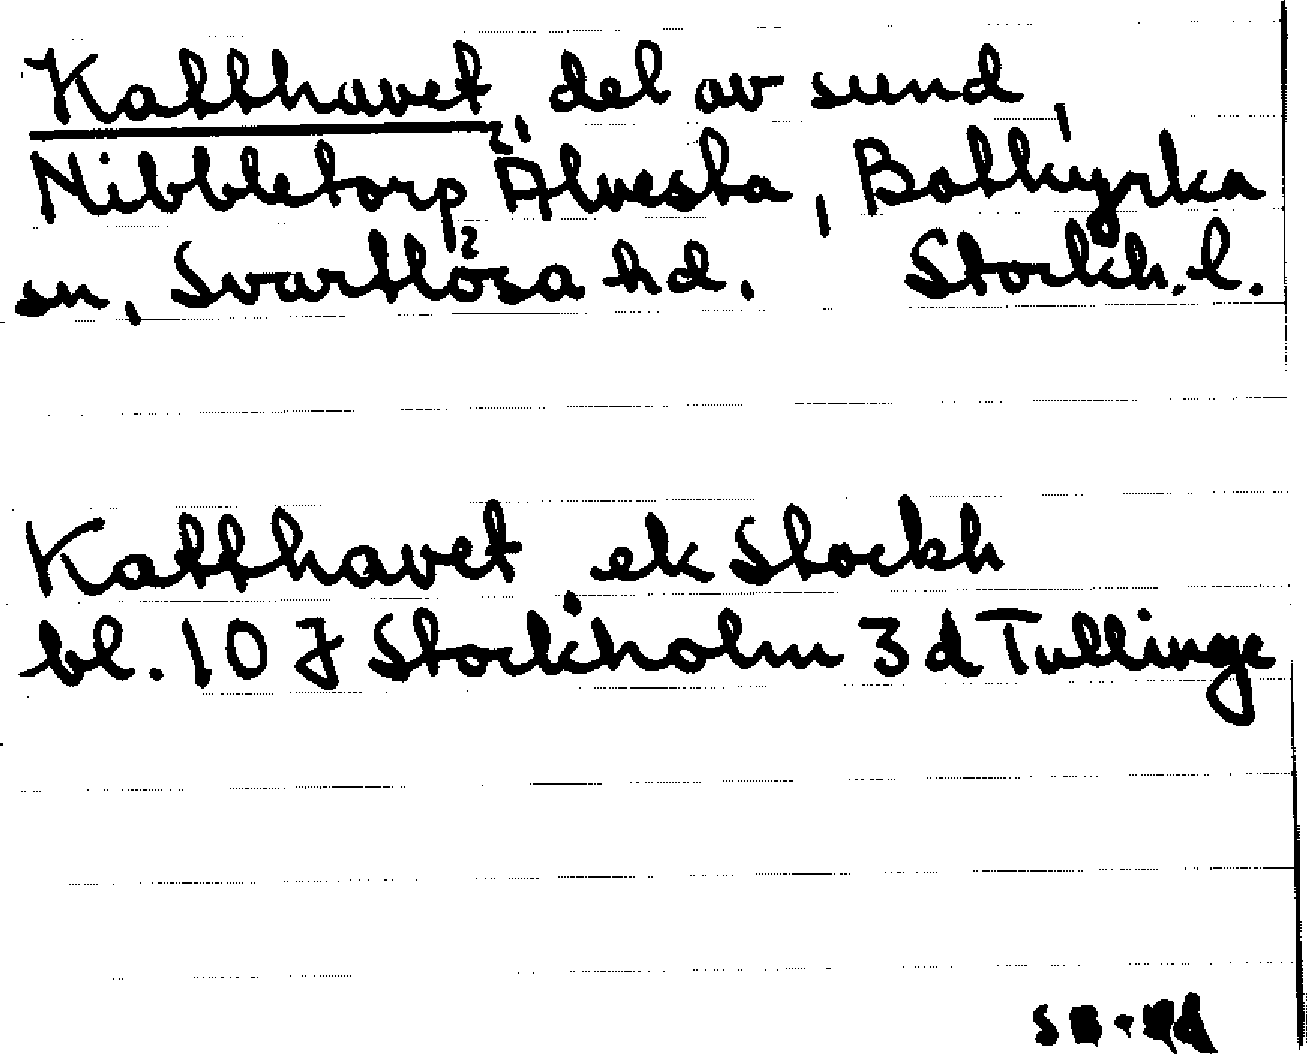 Katthavet, del av sund,
Nibbletorp, Älvesta, Botkyrka
sn, Svartlösa hd. Stockh. l.
Katthavet, ek Stockh
bl. 10 J Stockholm 3 d Tullinge